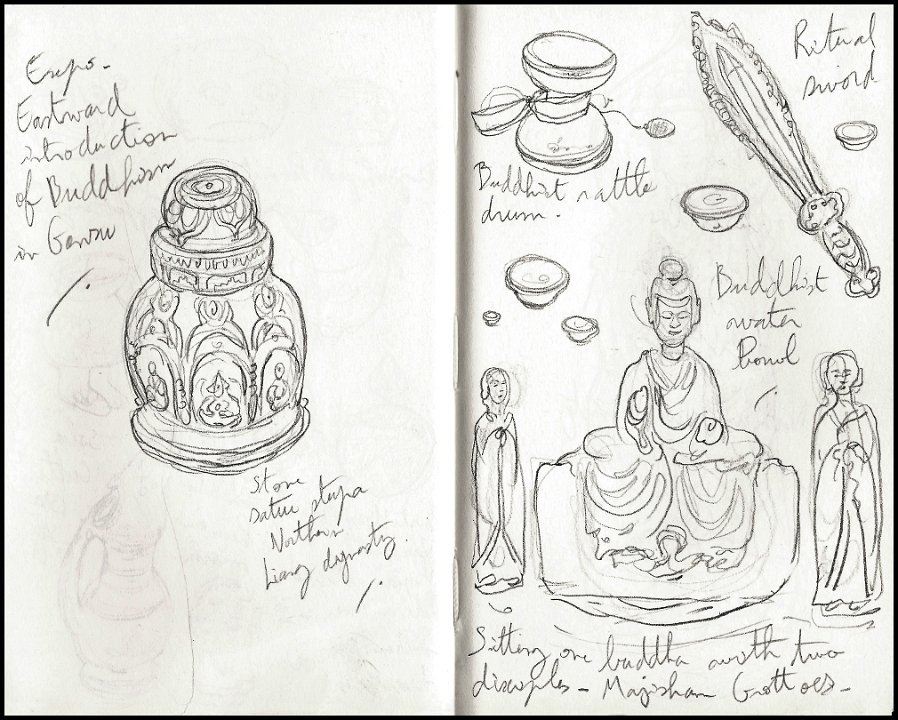 Expo-
Eastward
introduction
of Buddhism
in Gansu
Stone
statue stupa
Northern
Liang dynasty.
Buddhist rattle
drum.
Ritual
sword
Buddhist
water
bowl
Sitting one buddha with two
disciples - Majishan Grottoes-